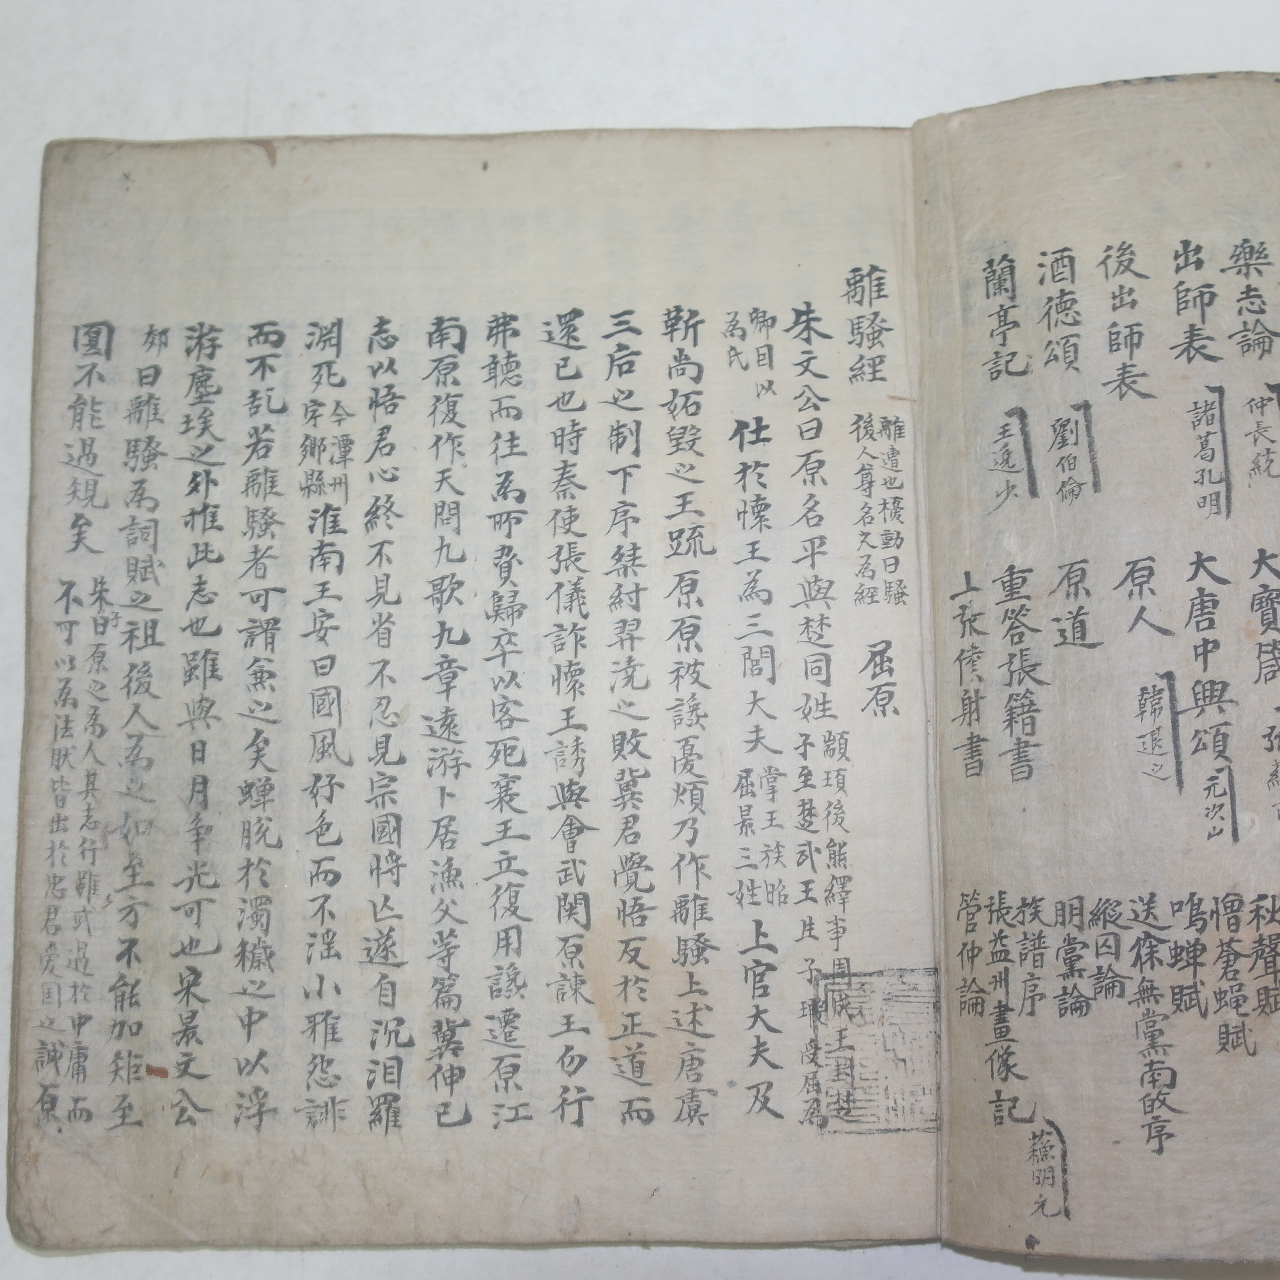 樂志論 仲長統 大寶箴 張蘊古 秋聲賦
憎蒼蝿賦
出師表 諸葛孔明 大唐中興頌 元次山 鳴蟬賦
後出師表 原人 韓退之 送徐無黨南敀序
縱囚論
酒德頌 劉伯倫 原道 朋黨論
族譜序
蘭亭記 王逸少 重答張籍書 張益州畫像記 蘇明允
上張僕射書 管仲論
離騷經 離遭也擾動曰騷 後人尊名之爲經 屈原
朱文公曰原名平與楚同姓 顓頊後熊繹事周成王封楚 子至楚武王生子瑕受屈爲
卿因以爲氏 仕於懷王為三閭大夫 掌王族昭屈景三姓 上官大夫及
靳尚妬毀之王疏原原被讒憂煩乃作離騷上述唐虞
三后之制下序桀紂羿澆之敗冀君覺悟反於正道而
還已也時秦使張儀詐懷王誘與會武関原諫王勿行
弗聽而往為所脅歸卒以客死襄王立復用讒遷原江
南原復作天問九歌九章遠游卜居漁父等篇冀伸己
志以悟君心終不見省不忍見宗國將亡遂自沉汨羅
淵死 今潭州寧鄉縣 淮南王安曰國風好色而不淫小雅怨誹
而不乱若離騷者可謂兼之矣蟬脫於濁穢之中以浮
游塵埃之外推此志也雖與日月爭光可也宋景文公
郊曰離騷為詞賦之祖後人為之如至方不能加矩至
圓不能過規矣 朱子曰原之為人其志行雖或過於中庸而 不可以為法然皆出於忠君愛国之誠原